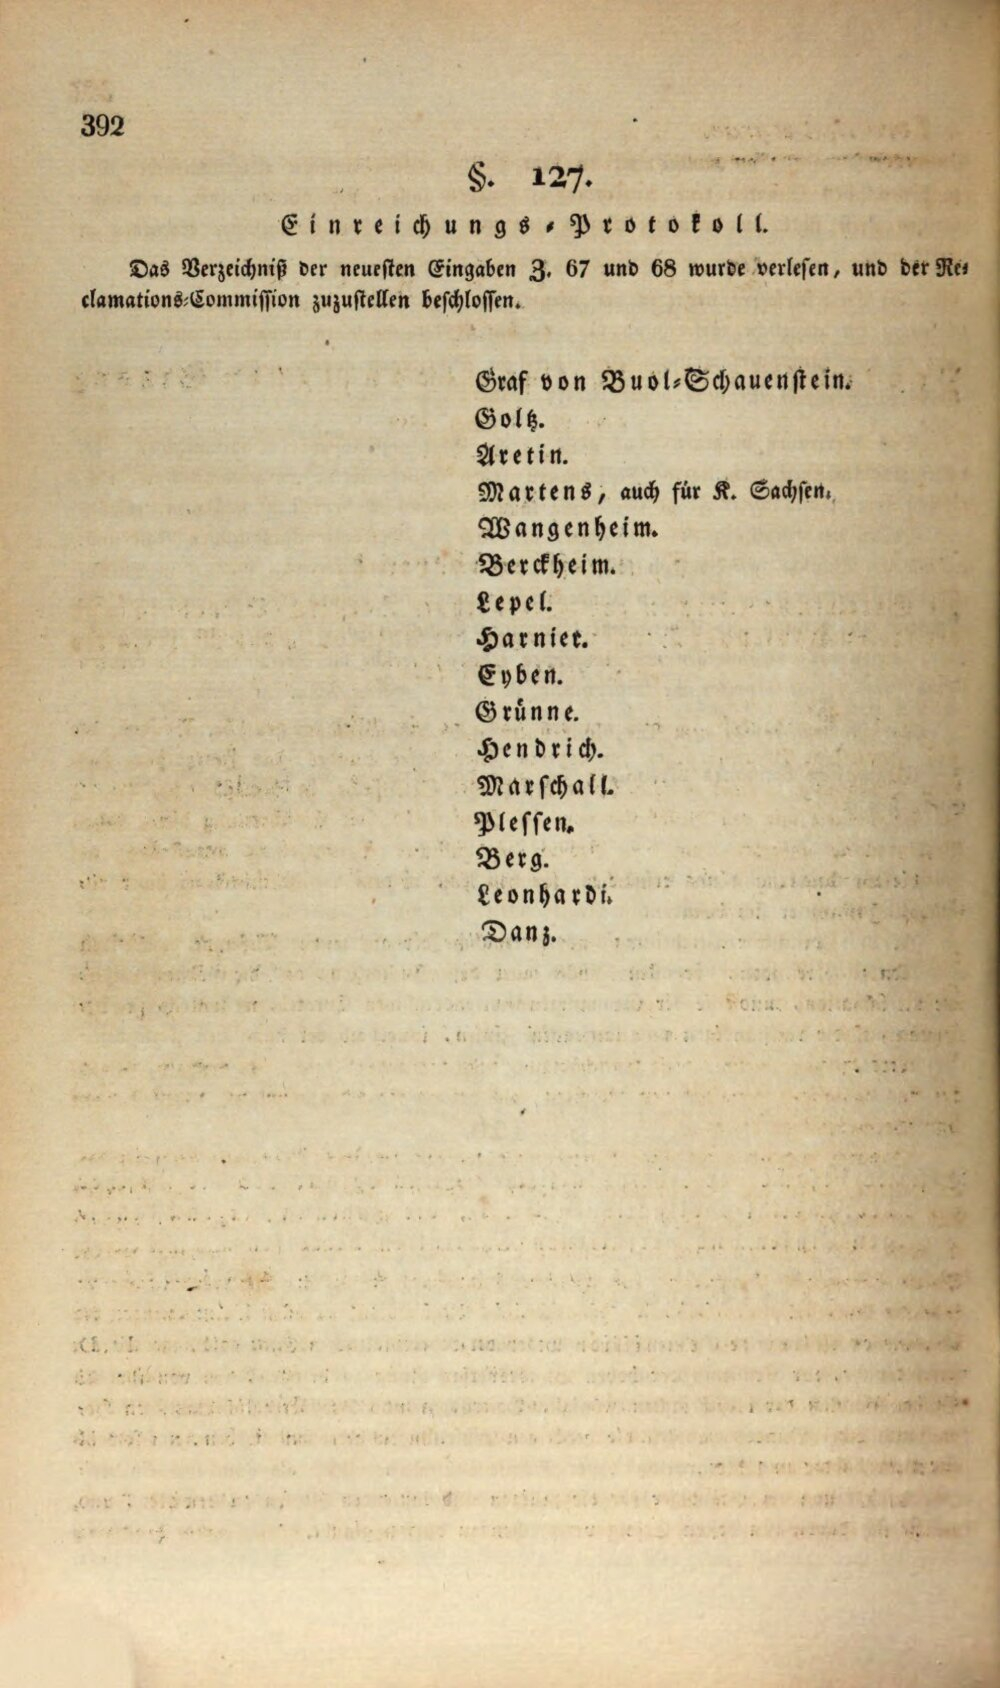 392
§. 127.
Einreichungs-Protokoll.
Das Verzeichniß der neuesten Eingaben Z. 67 und 68 wurde verlesen, und der Re-
clamations-Commission zuzustellen beschlossen.
Graf von Buol-Schauenstein.
Goltz.
Aretin.
Martens, auch für K. Sachsen.
Wangenheim.
Berckheim.
Lepel.
Harnier.
Eyben.
Grünne.
Hendrich.
Marschall.
Plessen.
Berg.
Leonhardi.
Danz.